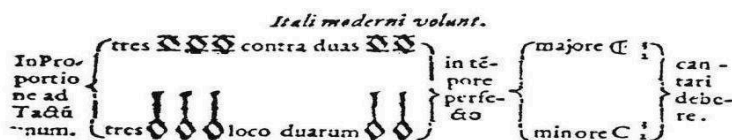 Itali moderni volunt.
InPro-
portio
ne ad
Tactũ
num.
tres contra duas
tres loco duarum
in tẽ-
pore
perfe-
cto
majore C 3 2
minore C 3 2
can-
tari
debe-
re.